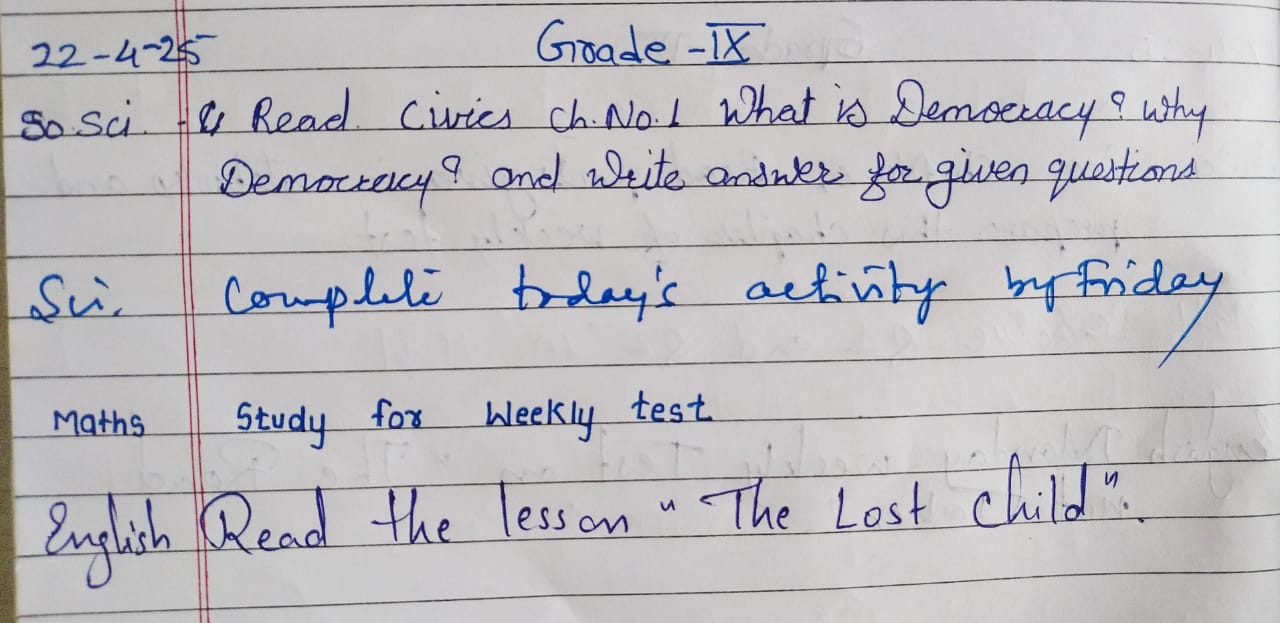 22-4-25 Grade-IX
So.Sci. Read Civics Ch.No.1 What is Democracy? Why
Democracy? and Write answer for given questions
Sci. Complete today's activity by Friday
Maths Study for Weekly test
English Read the lesson "The Lost Child".